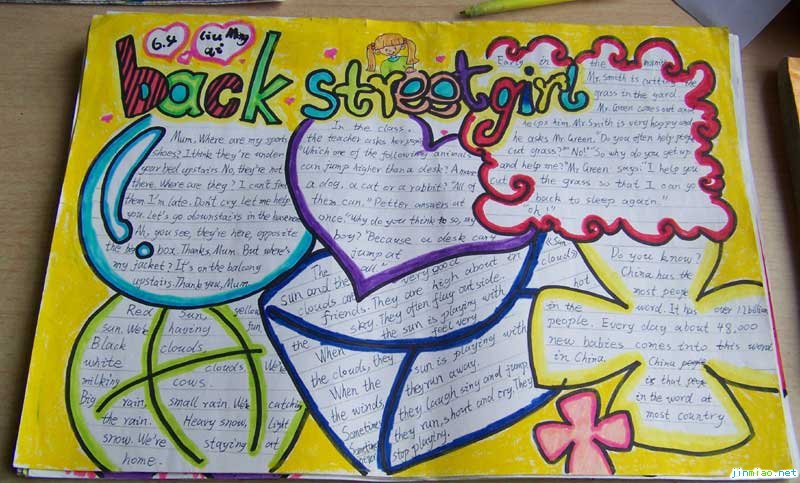 6.4
Liu Ming
back street girl
Mum. Where are my sports
shoes? I think they're under
your bed upstairs. No, they're not
there. Where are they? I can't find
them I'm late. Don't cry. Let me help
you. Let's go downstairs in the basement
Ah, you see, they're here, opposite
the box. Thanks, Mum. But where's
my jacket? It's on the balcony
upstairs. Thank you, Mum
In the class,
the teacher asks her
Which one of the following animals
can jump higher than a desk? A
a dog, a cat or a rabbit? "All of
them can." Petter answers at
once. "Why do you think so, my
boy?" "Because a desk can't
jump at
all
Early in the morning
Mr. Smith is cutting the
grass in the yard
Mr. Green comes out and
helps him. Mr. Smith is very happy and
he asks Mr. Green. "Do you often help people
cut grass?" "No!" "So why do you get up
and help me?" Mr Green says: "I help you
cut the grass so that I can go
back to sleep again."
"oh!"
Red Sun, yellow
sun. We're having fun.
Black clouds,
white clouds. We're
milking cows.
Big rain, small rain. We're catching
the rain. Heavy snow, light
snow. We're staying at
home.
《Sun clouds》
The
sun and the very good
clouds are high about in
friends. They are
the sky. They often play outside.
the sun is playing with
feel very hot
When
the clouds, they
When the sun is playing with
the winds, they run away.
Sometimes they laugh sing and jump
Sometimes they run, short and cry. They
stop playing.
Do you know?
China has the
most people
in the word. It has over 12 billion
people. Every day about 48,000
new babies comes into this word
in China. China people
is that
in the word at
most country
jinmiao.net